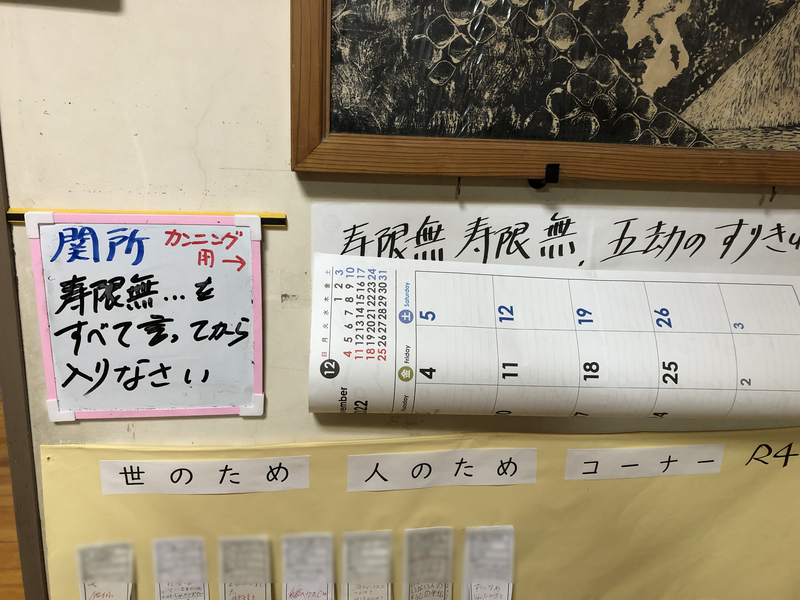 関所 カンニング
用→
寿限無…を
すべて言ってから
入りなさい
寿限無 寿限無、五劫のすりき
土 Saturday 5 12 19 26 3
金 Friday 4 11 18 25 2
12
日 月 火 水 木 金 土
1 2 3
4 5 6 7 8 9 10
11 12 13 14 15 16 17
18 19 20 21 22 23 24
25 26 27 28 29 30 31
世のため 人のため コーナー R4